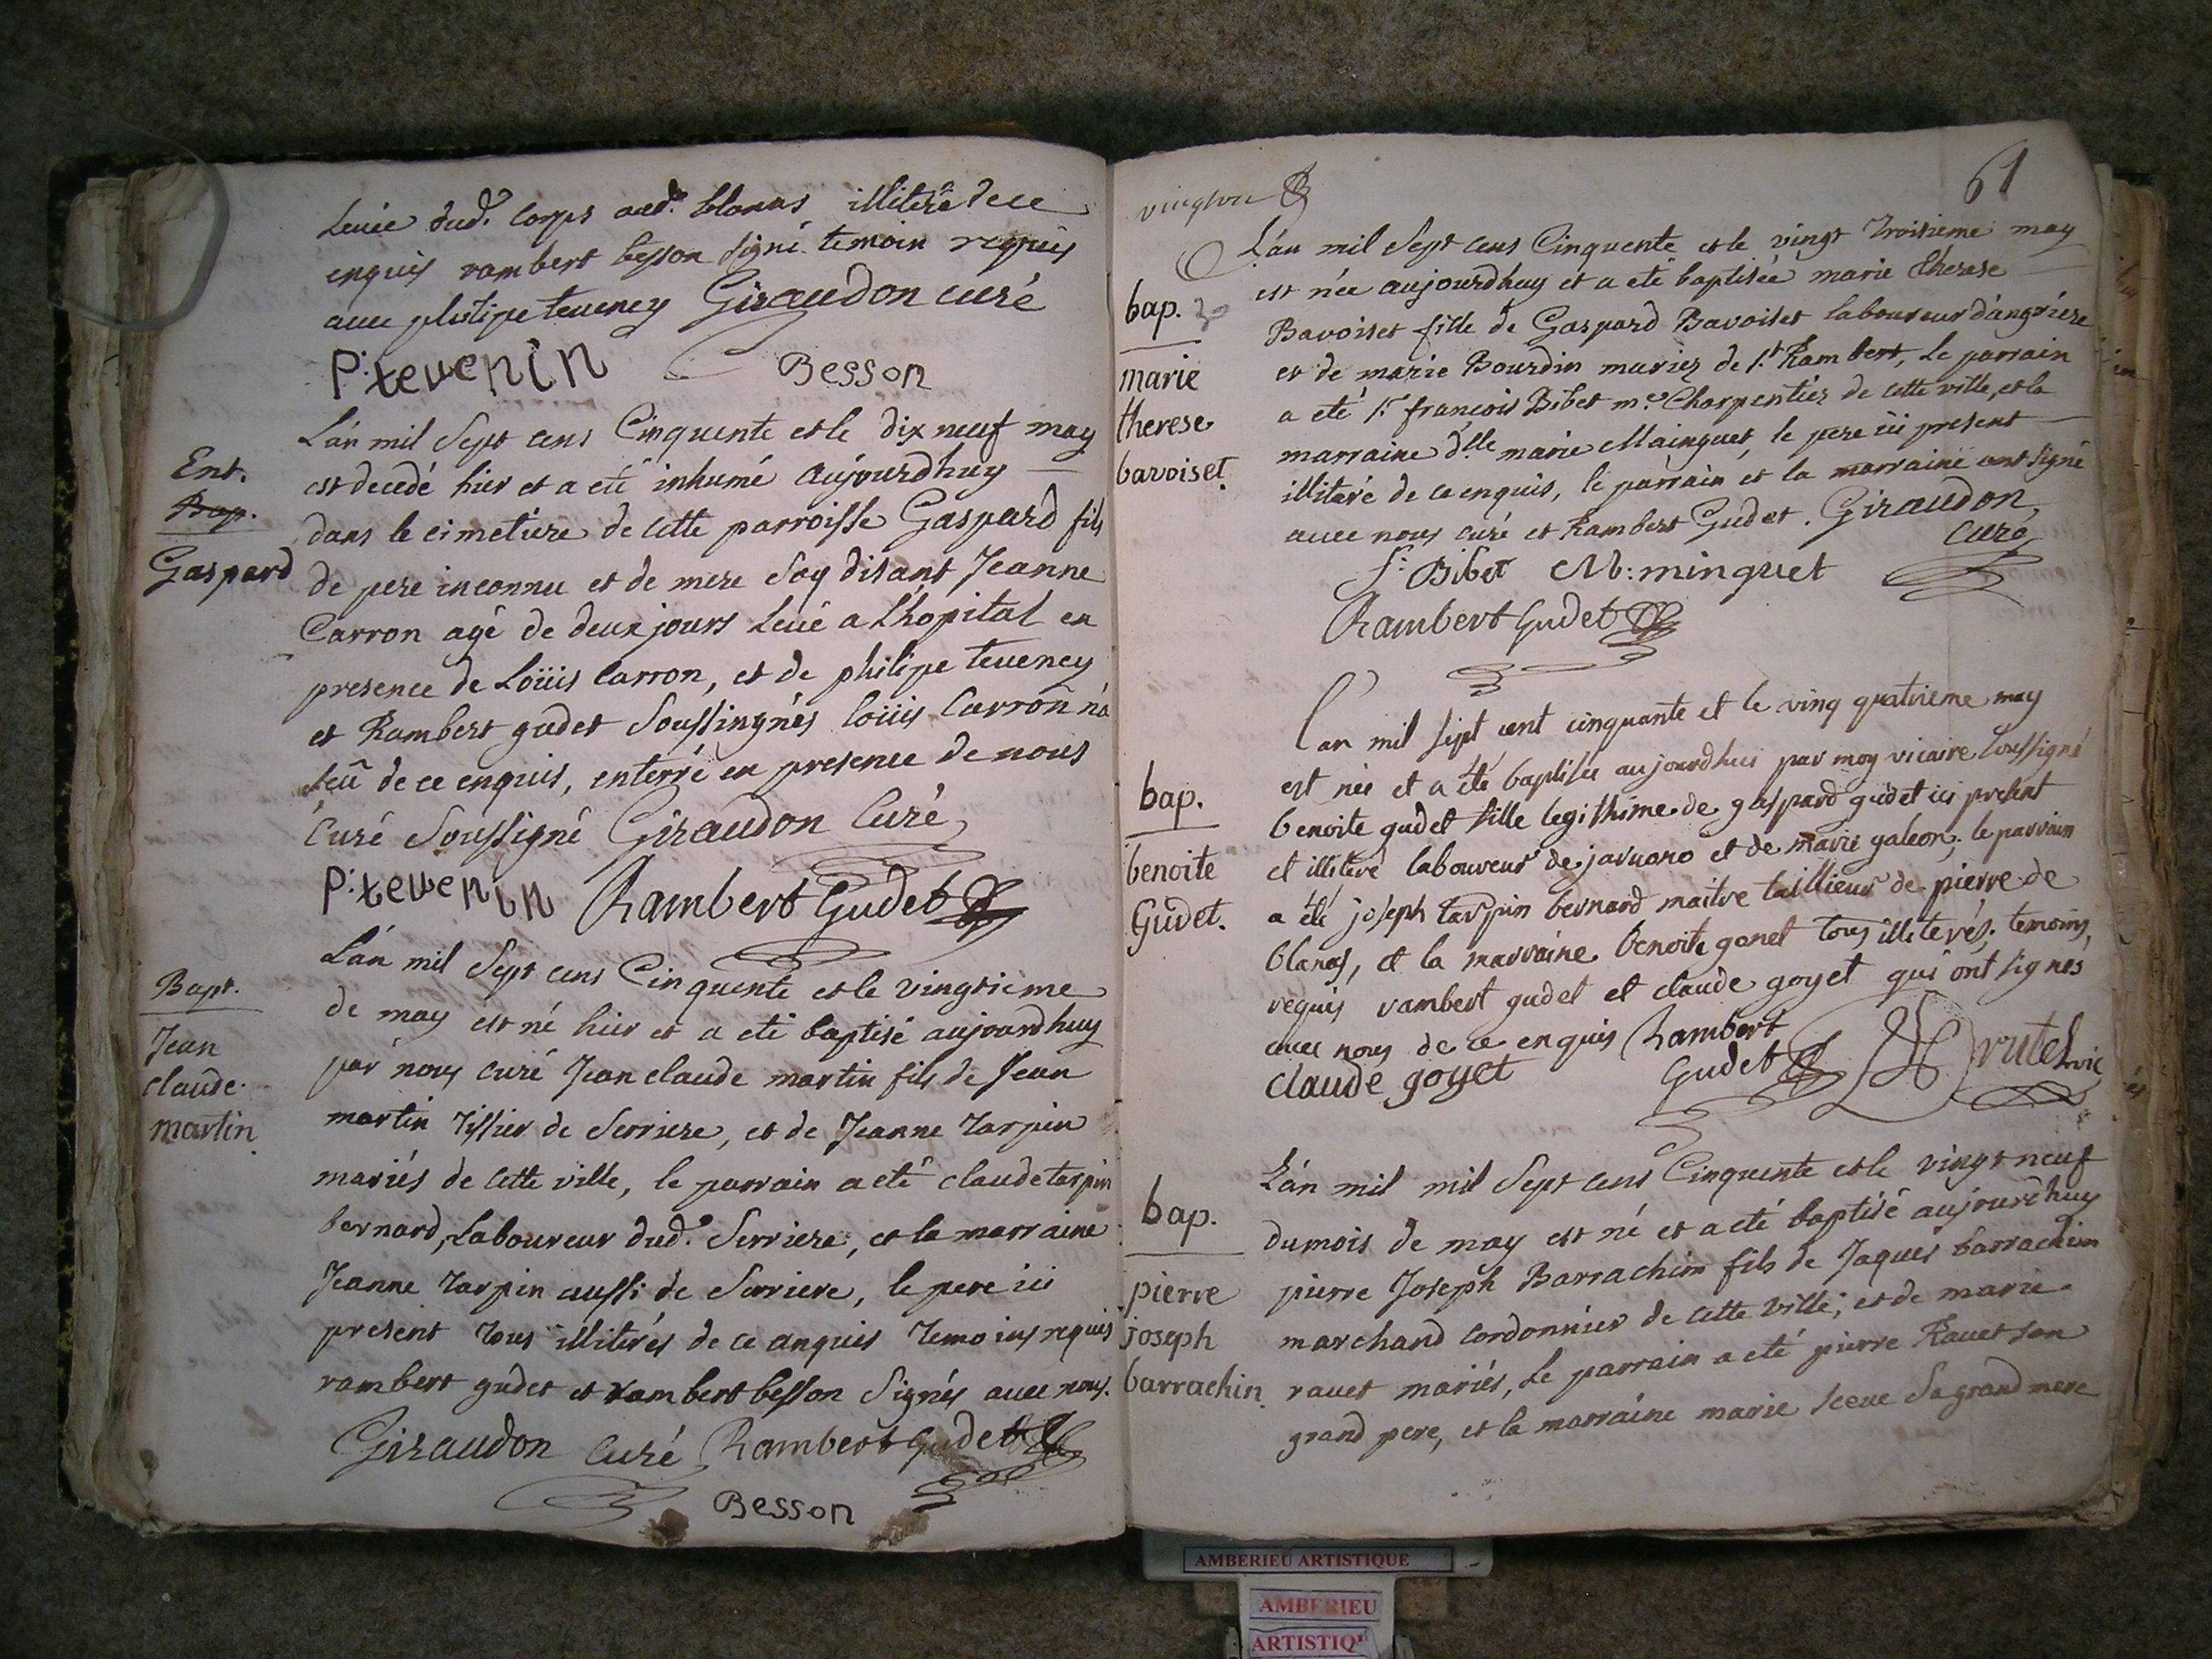 Levée dud. corps aud. blanas illiteré de ce
enquis rambert besson signé temoin requis
avec philipe teveney Giraudon curé
P: tevenin Besson
Ent.
Bap.
Gaspard
L'an mil sept cens Cinquente et le dix neuf may
est decedé hier et a eté inhumé aujourdhuy
dans le cimetiere de cette parroisse Gaspard fils
de pere inconnu et de mere soy disant Jeanne
Carron agé de deux jours levé a Lhopital en
presence de Loüis Carron, et de philipe teveney
et Rambert gudet soussingnés loüis Carron n'a
sçû de ce enquis, enterré en presence de nous
Curé soussigné Giraudon Curé
P: tevenin Rambert Gudet
Bapt.
Jean
claude
martin
L'an mil sept cens Cinquente et le vingtieme
de may est né hier et a eté baptisé aujourdhuy
par nous curé Jean claude martin fils de Jean
martin tissier de Serriere, et de Jeanne Tarpin
mariés de cette ville, le parrain a eté claude tarpin
bernard, Laboureur dud. Serriere, et la marraine
Jeanne Tarpin aussi de Serriere, le pere ici
present tous illiterés de ce anquis temoins requis
rambert gudet et rambert besson signés avec nous.
Giraudon Curé Rambert Gudet
Besson
61
L'an mil sept cens Cinquente et le vingt troisieme may
bap. 30
marie
therese
bavoiset.
est née aujourdhuy et a eté baptisée marie therese
Bavoiset fille de Gaspard Bavoiset laboureur d'angriere
et de marie Bourdin mariez de St Rambert, Le parrain
a eté Sr francois Bibet me. Charpentier de cette ville, et la
marraine dlle marie Mainguet, le pere ici present
illiteré de ce enquis, le parrain et la marraine ont signé
avec nous curé et Rambert Gudet. Giraudon
curé
f: Bibet M: minguet
Rambert Gudet
bap.
benoite
Gudet.
L'an mil sept cent cinquante et le vinq quatrieme may
est née et a été baptisée aujourdhui par moy vicaire soussigné
benoite gudet fille legithime de gaspard gudet ici present
et illiteré laboureur de javuono et de marie galeon; le parrain
a été joseph tarpin bernard maitre taillieur de pierre de
blanas, et la marraine benoite gonet tous illiterés; temoins
requis rambert gudet et claude goyet qui ont signés
avec nous de ce enquis Rambert
claude goyet Gudet Brutel vic
bap.
pierre
joseph
barrachin
L'án mil mil sept cens Cinquente et le vingt neuf
du mois de may est né et a eté baptisé aujourdhuy
pierre Joseph Barrachin fils de Jaques barrachin
marchand cordonnier de cette ville; et de marie
ravet mariés, Le parrain a eté pierre Ravet son
grand pere, et la marraine marie sceve sa grand mere
AMBERIEU ARTISTIQUE
AMBERIEU
ARTISTIQ